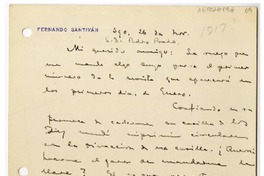 FERNANDO SANTIVÁN
Sgo. 26 de Nov.
Sr. D. Pedro Prado
Mi querido amigo: Le ruego que
me mande algo suyo para el primer
número de la revista que aparecerá en
los primeros días de Enero.
Confiando en su
promesa de cederme un casillo de los
Diez mandé imprimir circulares
con la dirección de ese casillo. ¿Querría
hacerme el favor de mandarme la
llave?